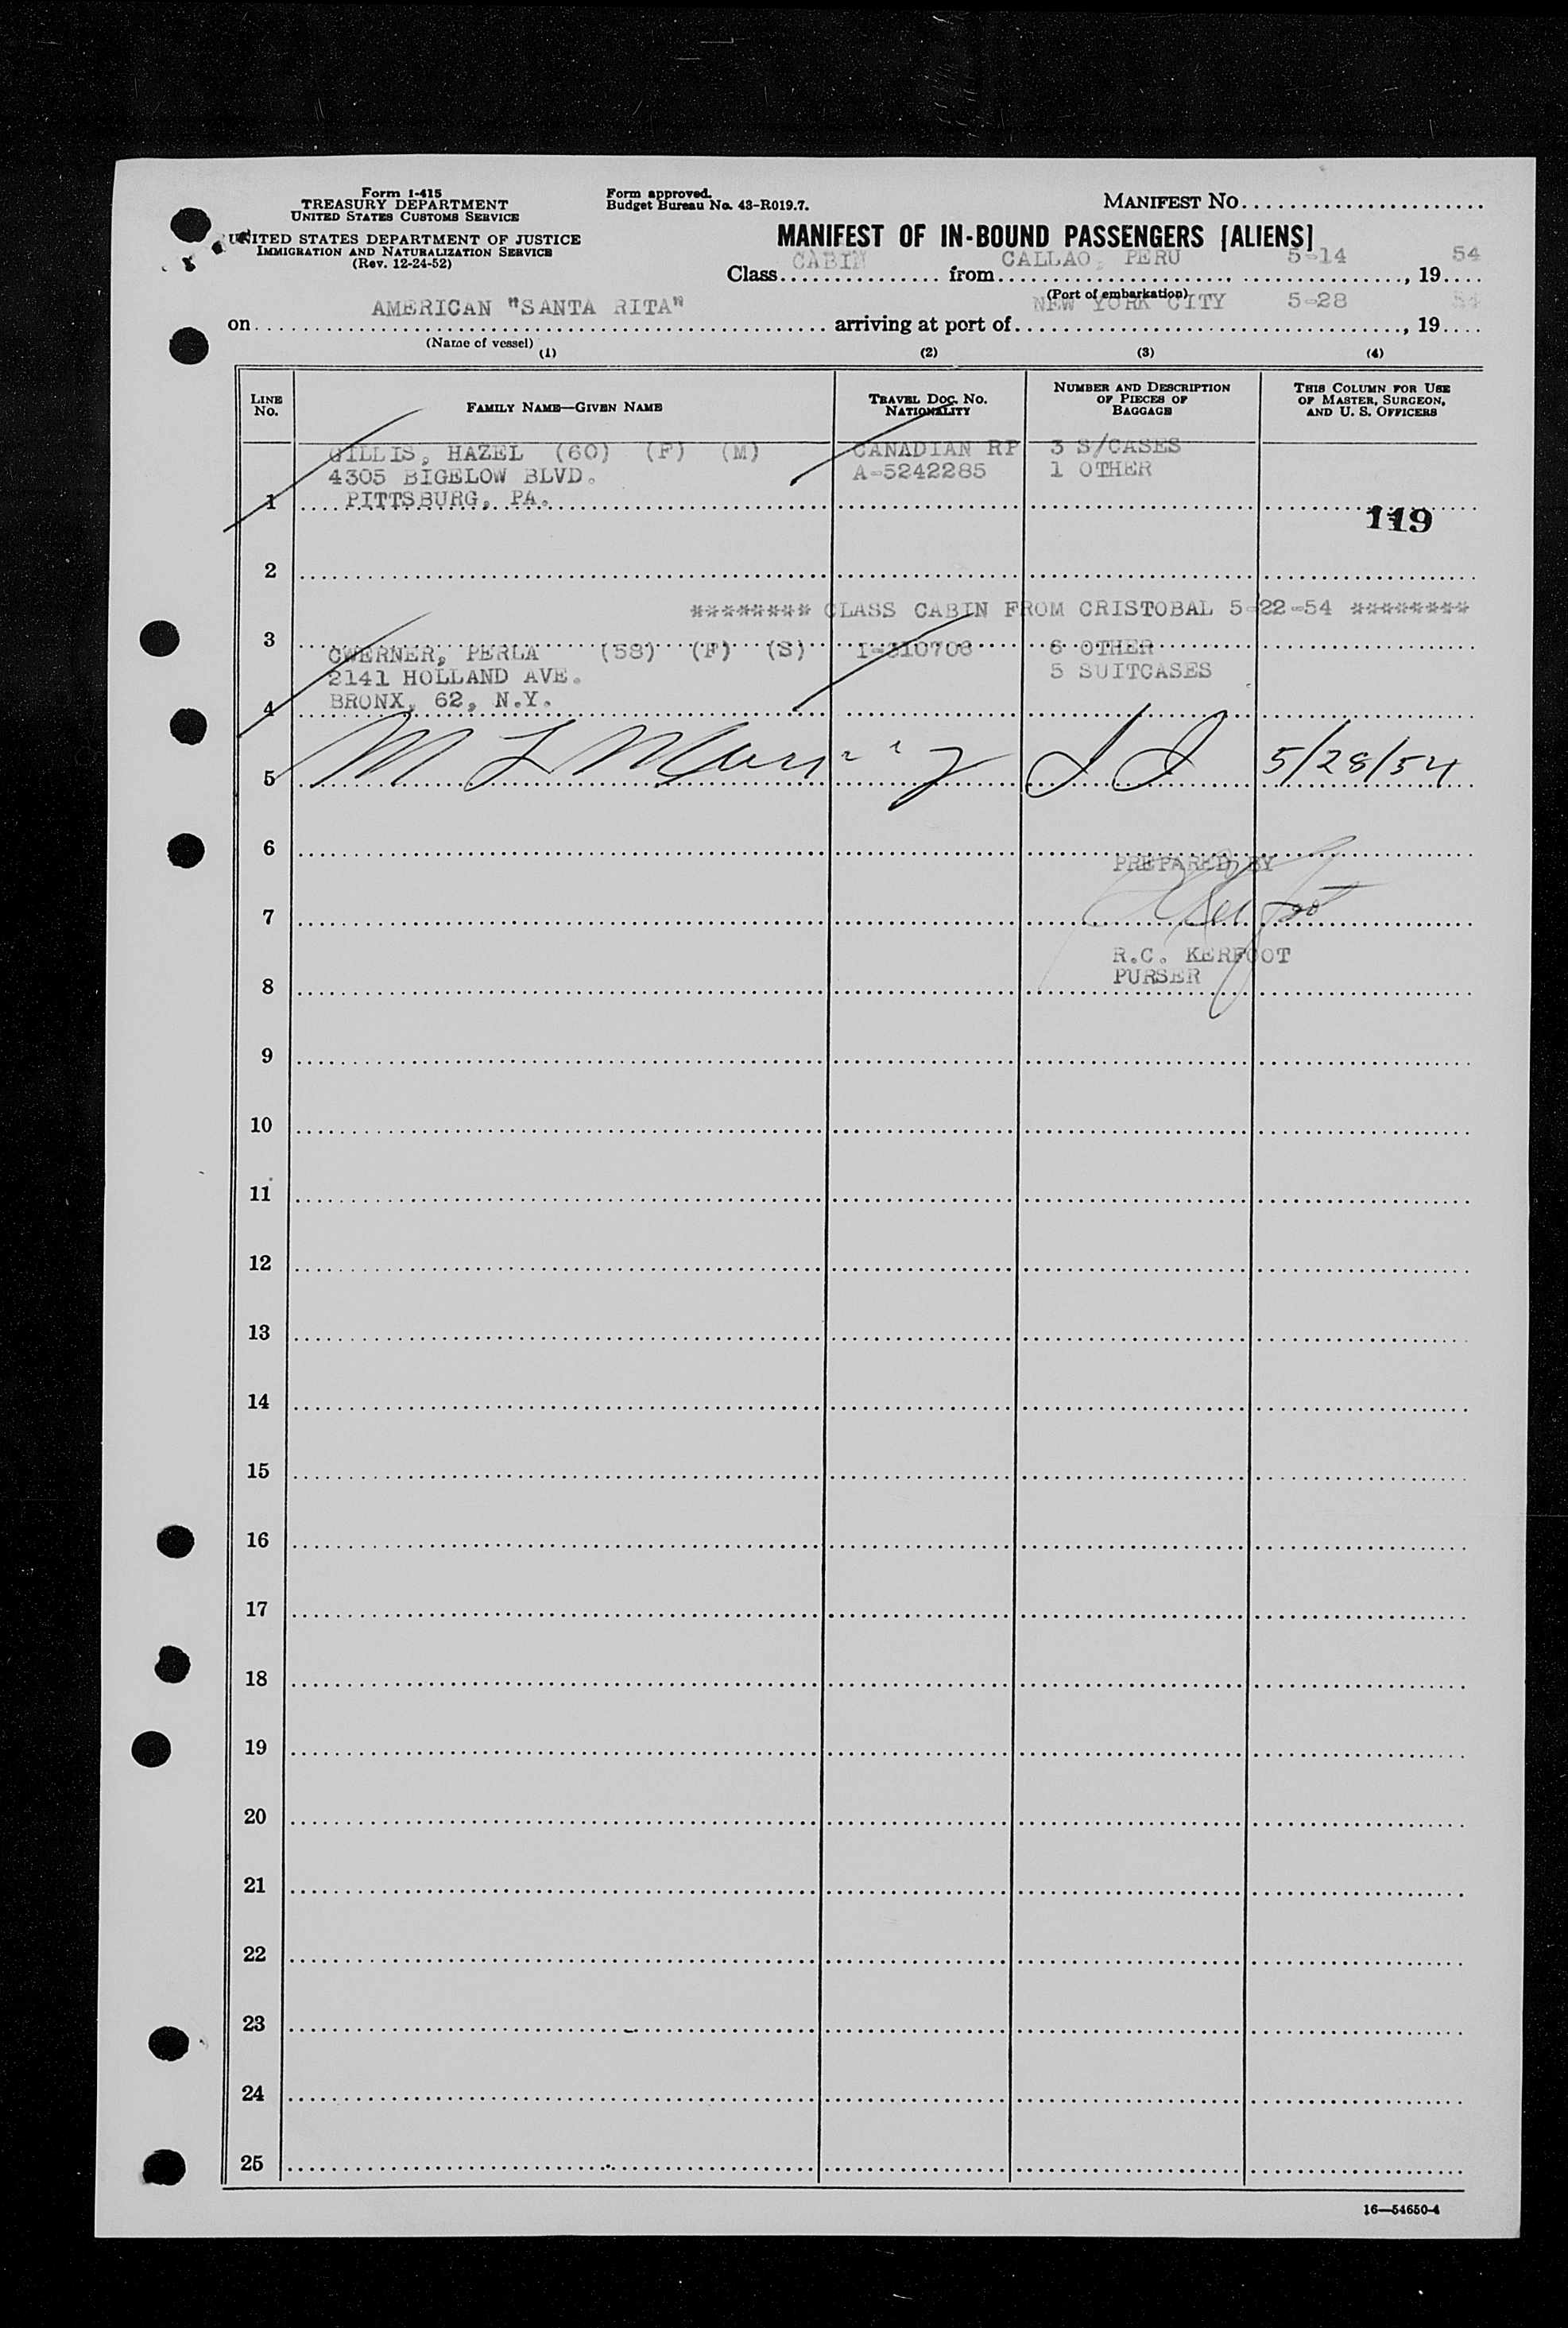 Form I-415
TREASURY DEPARTMENT
UNITED STATES CUSTOMS SERVICE
UNITED STATES DEPARTMENT OF JUSTICE
IMMIGRATION AND NATURALIZATION SERVICE
(Rev. 12-24-52)
Form approved.
Budget Bureau No. 43-R019.7.
MANIFEST NO.
MANIFEST OF IN-BOUND PASSENGERS [ALIENS]
Class CABIN from CALLAO, PERU 5-14, 19 54
(Port of embarkation)
on AMERICAN "SANTA RITA" arriving at port of NEW YORK CITY 5-28, 19 54
(Name of vessel)
(1) (2) (3) (4)
LINE No.
FAMILY NAME—GIVEN NAME
TRAVEL DOC. NO. NATIONALITY
NUMBER AND DESCRIPTION OF PIECES OF BAGGAGE
THIS COLUMN FOR USE OF MASTER, SURGEON, AND U. S. OFFICERS
GILLIS, HAZEL (60) (F) (M) CANADIAN RP 3 S/CASES
4305 BIGELOW BLVD. A-5242285 1 OTHER
1 PITTSBURG, PA.
119
2
******** CLASS CABIN FROM CRISTOBAL 5-22-54 ********
3
CWERNER, PERLA (58) (F) (S) I-310708 6 OTHER
2141 HOLLAND AVE. 5 SUITCASES
4 BRONX, 62, N.Y.
5 5/28/54
6
PREPARED BY
7
R.C. KERFOOT
PURSER
8
9
10
11
12
13
14
15
16
17
18
19
20
21
22
23
24
25
16—54650-4